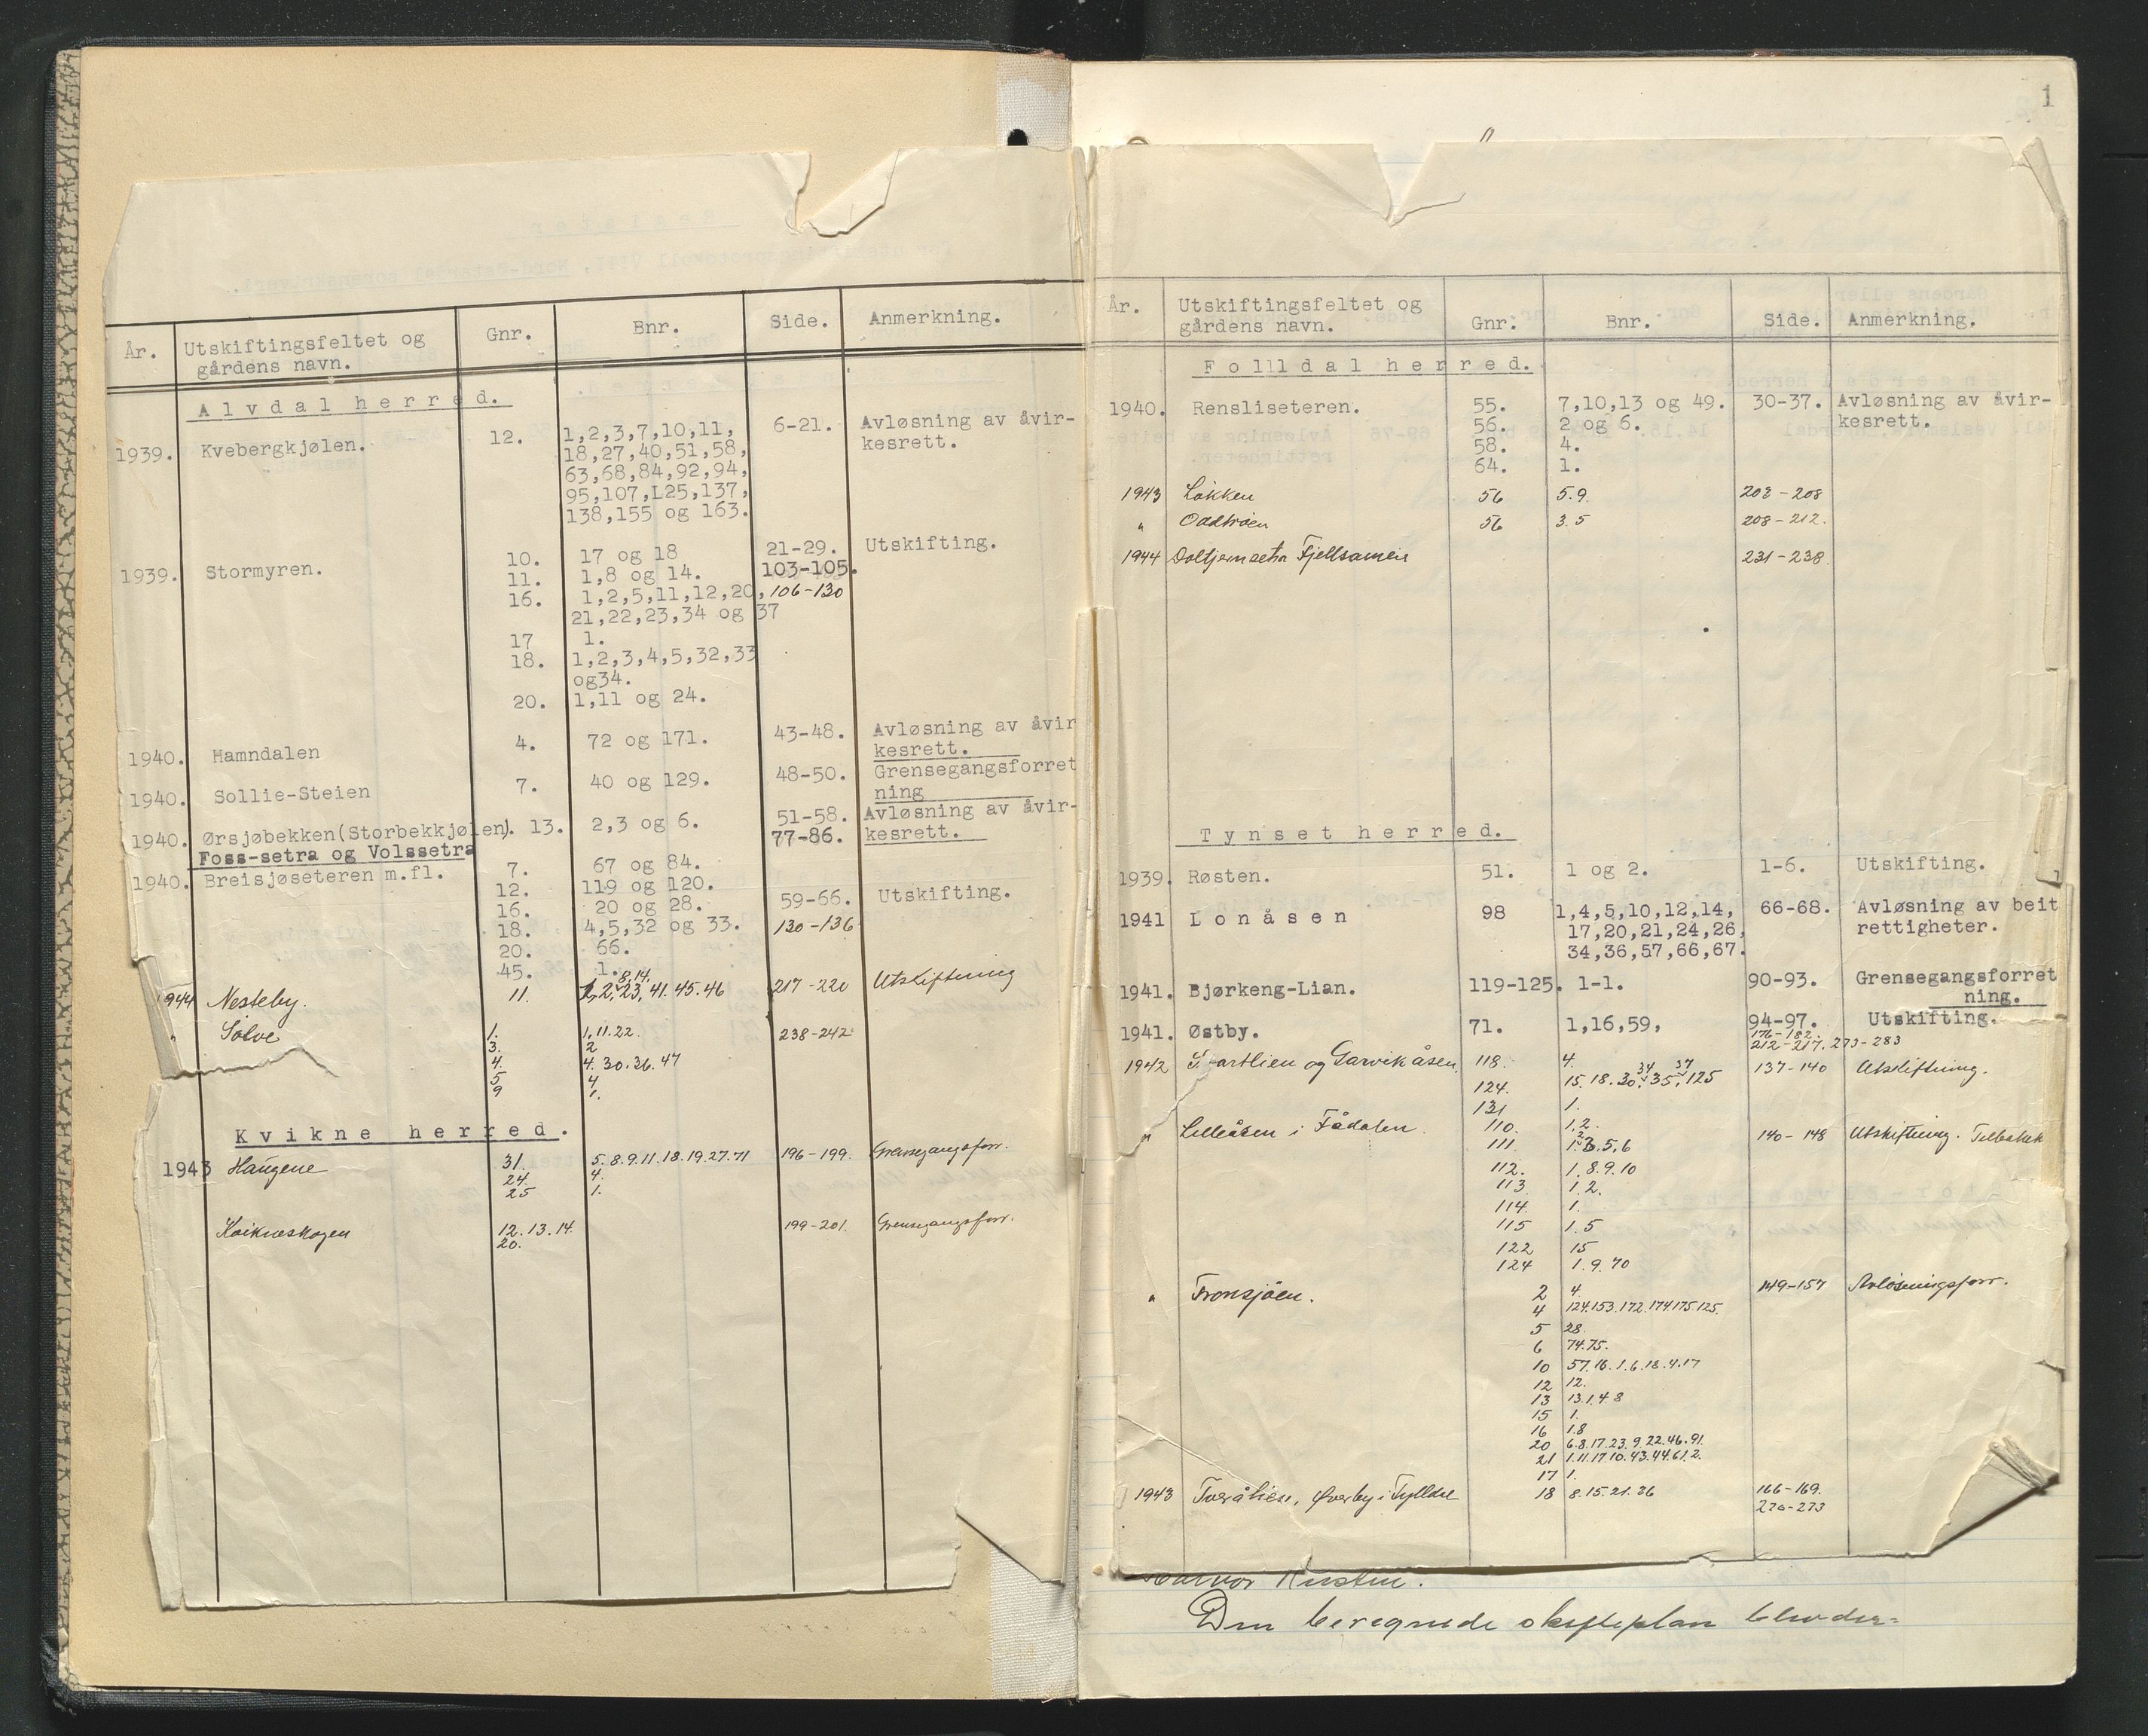 År. Utskiftingsfeltet og gårdens navn. Gnr. Bnr. Side. Anmerkning.
Alvdal herred.
1939. Kvebergkjølen. 12. 1,2,3,7,10,11, 6-21. Avløsning av åvir-
18,27,40,51,58, kesrett.
63,68,84,92,94,
95,107,L25,137,
138,155 og 163.
1939. Stormyren. 10. 17 og 18 21-29. Utskifting.
11. 1,8 og 14. 103-105.
16. 1,2,5,11,12,20, 106-130
21,22,23,34 og 37
17 1.
18. 1,2,3,4,5,32,33
og34.
20. 1,11 og 24.
1940. Hamndalen 4. 72 og 171. 43-48. Avløsning av åvir
kesrett.
1940. Sollie-Steien 7. 40 og 129. 48-50. Grensegangsforret
ning
1940. Ørsjøbekken(Storbekkjølen). 13. 2,3 og 6. 51-58. Avløsning av åvir-
Foss-setra og Volssetra 77-86. kesrett.
1940. Breisjøseteren m.fl. 7. 67 og 84.
12. 119 og 120. 59-66. Utskifting.
16. 20 og 28.
18. 4,5,32 og 33. 130-136
20. 66.
45. 1.
8,14.
1944 Nesteby. 11. 1,2,23,41.45.46 217-220 Utskiftning
" Sølve 1. 1,11.22. 238-242
3. 2
4. 4.30.36.47
5 4
9 1.
Kvikne herred.
1943 Haugene 31. 5.8.9.11.18.19.27.71 196-199. Grensegangsforr.
24. 4.
25 1.
Kvikneskogen 12.13.14. 199-201. Grensegangsforr.
20.
1
År. Utskiftingsfeltet og gårdens navn. Gnr. Bnr. Side. Anmerkning.
Folldal herred.
1940. Rensliseteren. 55. 7,10,13 og 49. 30-37. Avløsning av åvir-
56. 2 og 6. kesrett.
58. 4.
64. 1.
1943 Løkken 56 5.9. 203-208
" Oddtrøen 56 3.5 208-212.
1944 Fjellsameie 231-238
Tynset herred.
1939. Røsten. 51. 1 og 2. 1-6. Utskifting.
1941 Lonåsen 98 1,4,5,10,12,14, 66-68. Avløsning av beit
17,20,21,24,26, rettigheter.
34,36,57,66,67.
1941. Bjørkeng-Lian. 119-125. 1-1. 90-93. Grensegangsforret
ning.
1941. Østby. 71. 1,16,59, 94-97. Utskifting.
176-182.
212-217. 273-283
1942 og Garvikåsen. 118. 4. 137-140 Utskiftning.
34 37
124. 15.18.30.35.125
131 1.
" Lilleåsen i Fådalen. 110. 1,2. 140-148 Utskiftning.
111. 1.2.3.5,6
112. 1.8.9.10
113 1.2.
114. 1.
115 1.5
122 15
124 1.9.70
" Fronsjøen. 2 4. 149-157 Avløsningsforr.
4 124.153.172.174.175.125.
5 28.
6 74.75.
10 57.16.1.6.18.4.17
12 12.
13 13.1.4.8
15 1.
16 1.8
20 6.8.17.23.9.22.46.91.
21 1.11.17.10.43.44.61.2.
17 1.
1943 Tveråsen, Øverby i Tylldal 18 8.15.21.26 166-169.
270-273
Den beregnede skifteplan blev der=